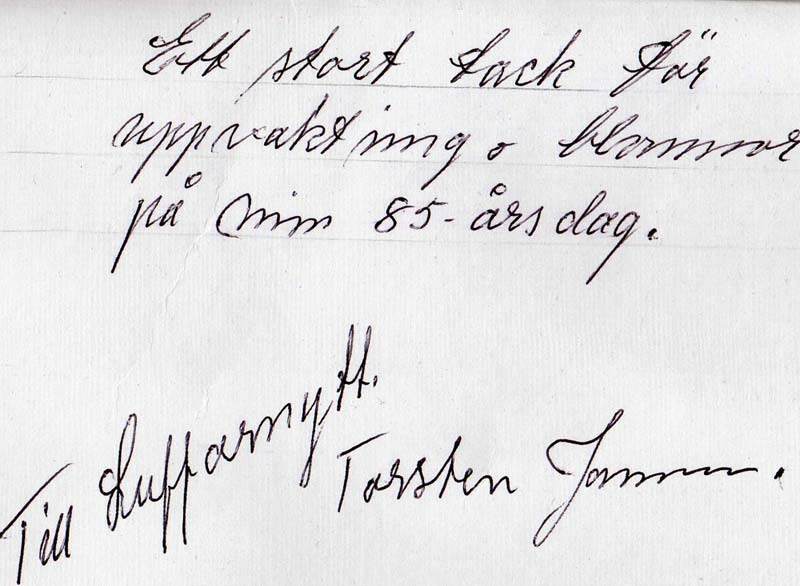 Ett stort tack för
uppvaktning o blommor
på min 85-årsdag.
Till Luffarnytt.
Torsten